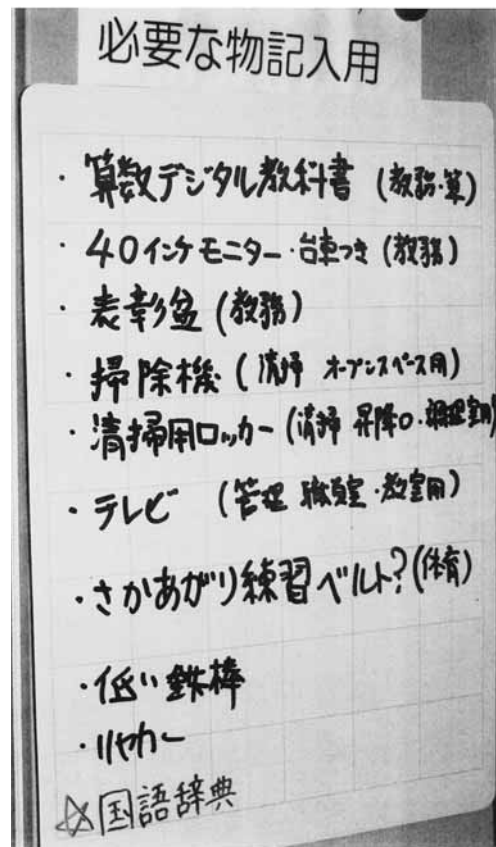 必要な物記入用
・算数デジタル教科書(教務・算)
・40インチモニター・台車つき(教務)
・表彰盆(教務)
・掃除機(清掃 オープンスペース用)
・清掃用ロッカー(清掃 昇降口・調理室用)
・テレビ(管理 職員室・教室用)
・さかあがり練習ベルト?(体育)
・低い鉄棒
・リヤカー
☆国語辞典